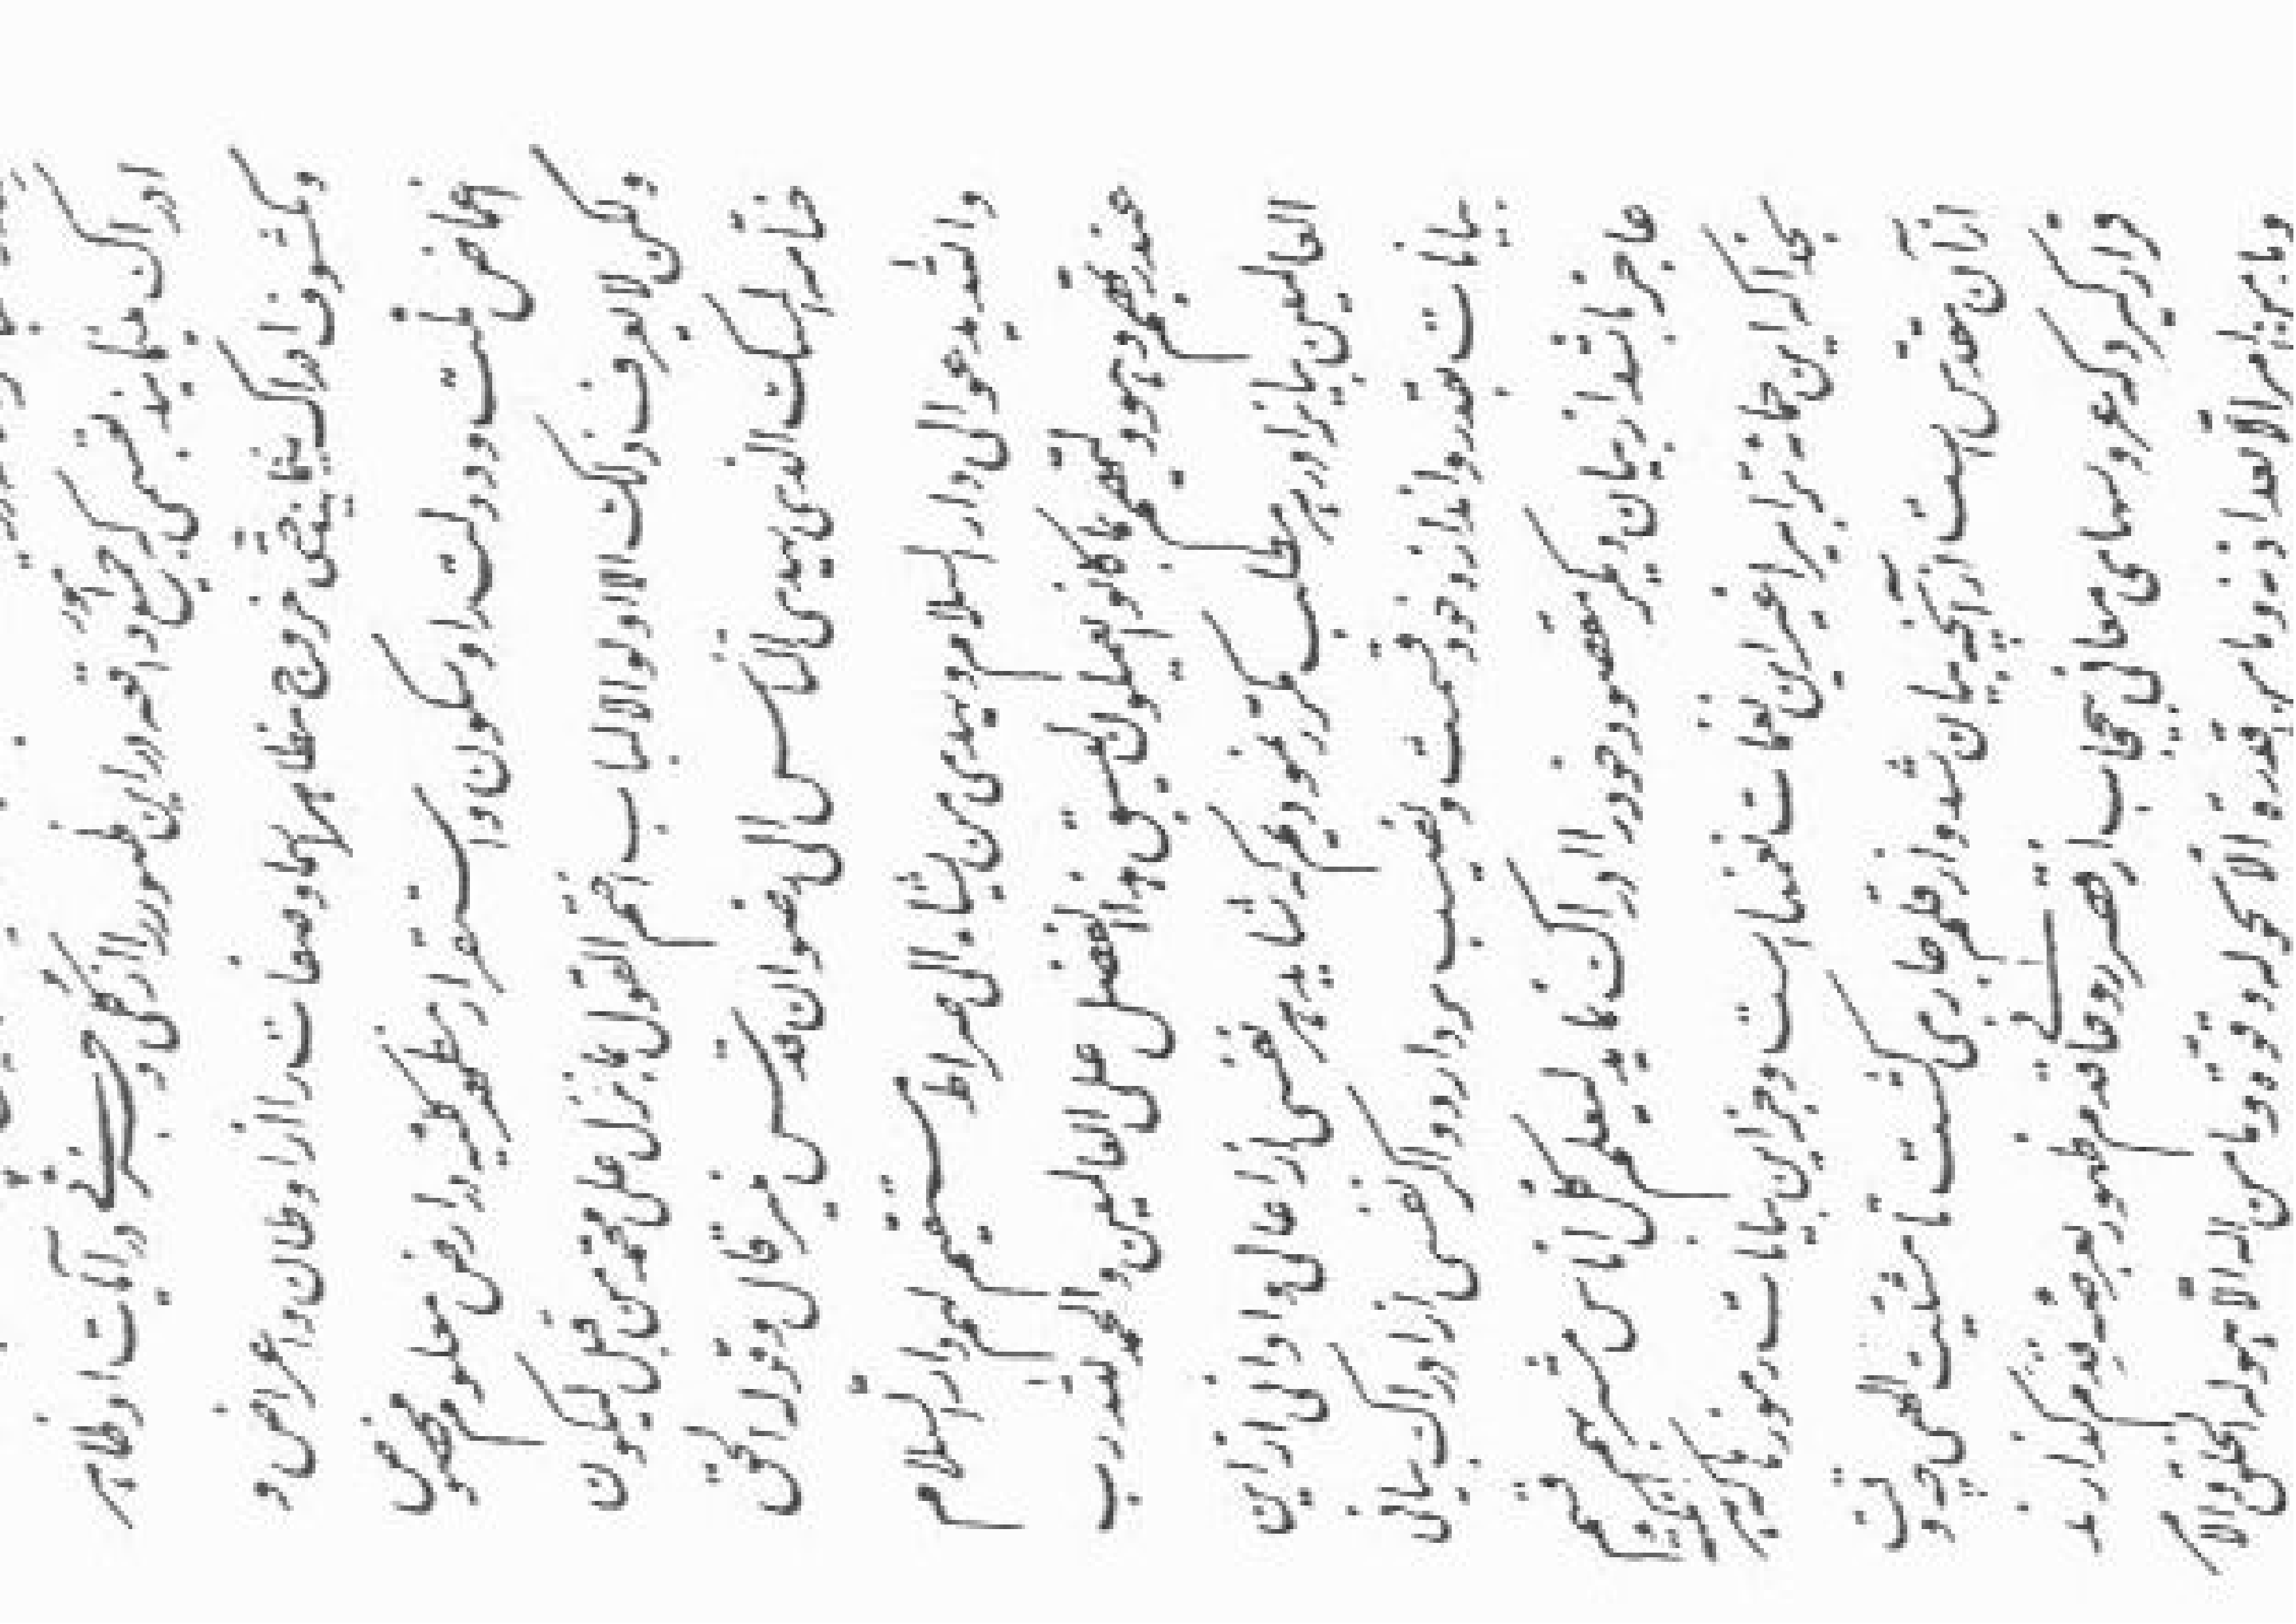 ادراک مینمائید بقسمی که جمیع امور واقعه در این ظهور را از کلی و جزئی در آیات او ظاهر
و مکشوف ادراک مینمائید حتی خروج مظاهر اسما و صفات را از اوطان و اعراض و
اغماض ملت و دولت را و سکون و استقرار مظهر کلیه در ارض معلوم مخصوص
ولکن لا یعرف ذلک الا اولوا الالباب اختم القول بما نزل علی محمد من قبل لیکون
ختامه المسک الذی یهدی الناس الی رضوان قدس منیر قال و قوله الحق
والله یدعو الی دار السلام و یهدی من یشاء الی صراط مستقیم لهم دار السلام
عند ربهم و هو ولیهم بما کانوا یعملون لیسبق هذا الفضل علی العالمین و الحمد لله رب
العالمین بیانات را در هر مطلب مکرر نمودیم که شاید هر نفسی از اعالی و ادانی از این
بیانات بقدر و اندازه خود قسمت و نصیب بردارد و اگر نفسی از ادراک بیانی
عاجز باشد از بیان دیگر مقصود خود را ادراک نماید لیعلم کل اناس مشربهم قسم
بخدا که این حمامه ترابی را غیر این نغمات نغمهاست و جز این بیانات رموزها که هر نکته
از آن مقدس است از آنچه بیان شد و از قلم جاری گشت تا مشیت الهی چه وقت
قرار گیرد که عروسهای معانی بیحجاب از قصر روحانی قدم ظهور بعرصه قدم گذارند
و ما من امر الا بعد اذنه و ما من قدرة الا بحوله و قوته و ما من اله الا هو له الخلق و الامر